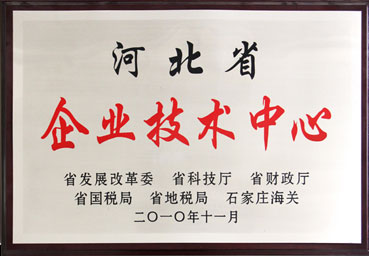 河北省
企业技术中心
省发展改革委 省科技厅 省财政厅
省国税局 省地税局 石家庄海关
二〇一〇年十一月